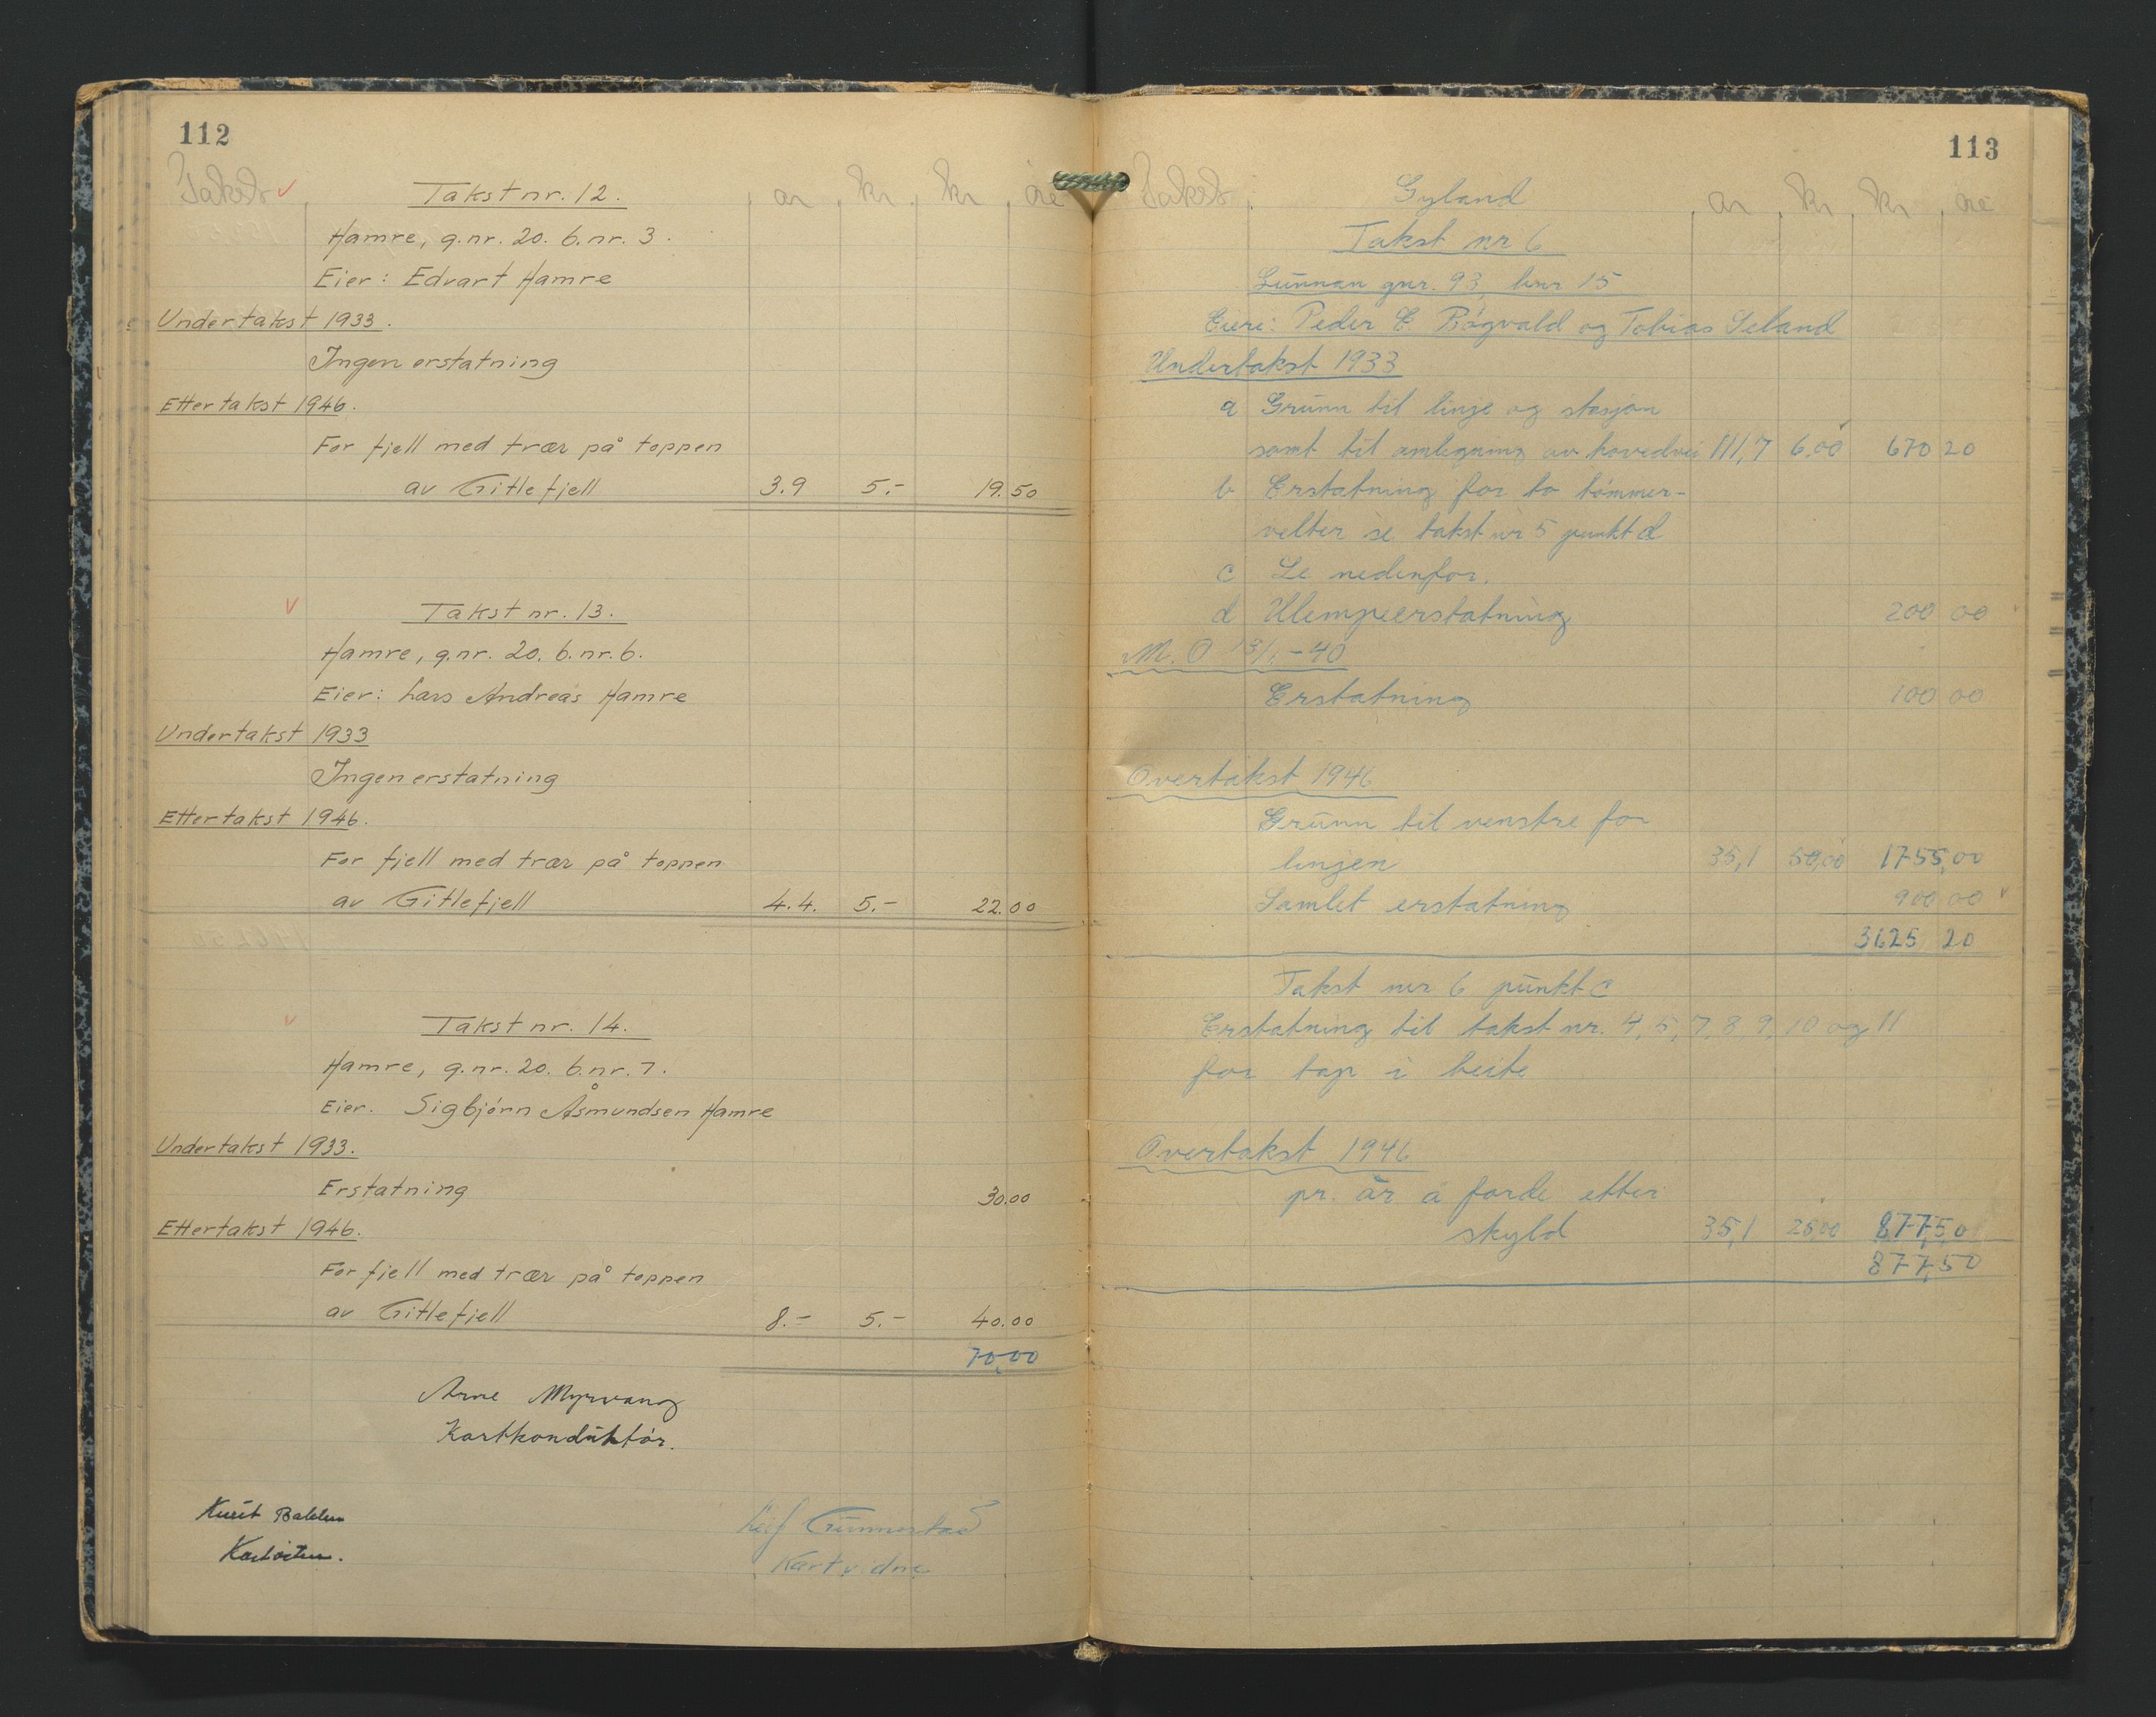 112
Takst ar kr kr øre
Takst nr. 12.
Hamre, g.nr. 20. b.nr. 3.
Eier: Edvart Hamre
Undertakst 1933.
Ingen erstatning
Ettertakst 1946.
For fjell med trær på toppen
av Gitlefjell 3.9 5.- 19.50
Takst nr. 13.
Hamre, g.nr. 20. b.nr. 6.
Eier: Lars Andreas Hamre
Undertakst 1933
Ingen erstatning
Ettertakst 1946.
For fjell med trær på toppen
av Gitlefjell 4.4. 5.- 22.00
Takst nr. 14.
Hamre, g.nr. 20. b.nr. 7.
Eier. Sigbjørn Åsmundsen Hamre
Undertakst 1933.
Erstatning 30.00
Ettertakst 1946.
For fjell med trær på toppen
av Gitlefjell 8.- 5.- 40.00
70,00
Arne Myrvang
Kartkonduktør.
Leif Gunnestad
Kartvidne
113
Takst Gyland ar kr kr øre
Takst nr 6
Lunnan gnr. 93, bnr 15
Eiere: Peder E. Røgvald og Tobias Seland
Undertakst 1933
a Grunn til linje og stasjon
samt til omlegning av hovedvei 111,7 6,00 670 20
b Erstatning for to tømmer-
velter se takst nr 5 punkt d
c Se nedenfor.
d Ulempeerstatning 200 00
M. O 13/1 - 40
Erstatning 100 00
Overtakst 1946
Grunn til venstre for
linjen 35,1 50,00 1755,00
Samlet erstatning 900 00
3625 20
Takst nr 6 punkt c
Erstatning til takst nr. 4, 5, 7, 8, 9, 10 og 11
for tap i beite
Overtakst 1946
pr. ar å forde etter
skyld 35,1 25,00 877,50
877,50